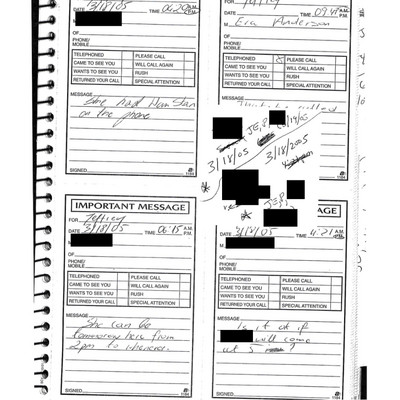 DATE 3/18/05 TIME 06:20 A.M. P.M.
M
OF
PHONE/
MOBILE
TELEPHONED PLEASE CALL
CAME TO SEE YOU WILL CALL AGAIN
WANTS TO SEE YOU RUSH
RETURNED YOUR CALL SPECIAL ATTENTION
MESSAGE
on the phone
SIGNED
1184
DATE TIME 09:49 A.M. P.M.
M Eva Anderson
OF
PHONE/
MOBILE
TELEPHONED PLEASE CALL
CAME TO SEE YOU WILL CALL AGAIN
WANTS TO SEE YOU RUSH
RETURNED YOUR CALL SPECIAL ATTENTION
MESSAGE
J.E.
3/18/05
3/18/2005
J.E.
1184
IMPORTANT MESSAGE
FOR Jeffrey
DATE 3/18/05 TIME 06:15 A.M. P.M.
M
OF
PHONE/
MOBILE
TELEPHONED PLEASE CALL
CAME TO SEE YOU WILL CALL AGAIN
WANTS TO SEE YOU RUSH
RETURNED YOUR CALL SPECIAL ATTENTION
MESSAGE
She can be
tomorrow here from
2pm to whenever.
SIGNED
1184
MESSAGE
DATE 3/18/05 TIME 4:21 A.M. P.M.
M
OF
PHONE/
MOBILE
TELEPHONED PLEASE CALL
CAME TO SEE YOU WILL CALL AGAIN
WANTS TO SEE YOU RUSH
RETURNED YOUR CALL SPECIAL ATTENTION
MESSAGE
Is it ok if
will come
at 5 ?
SIGNED
1184